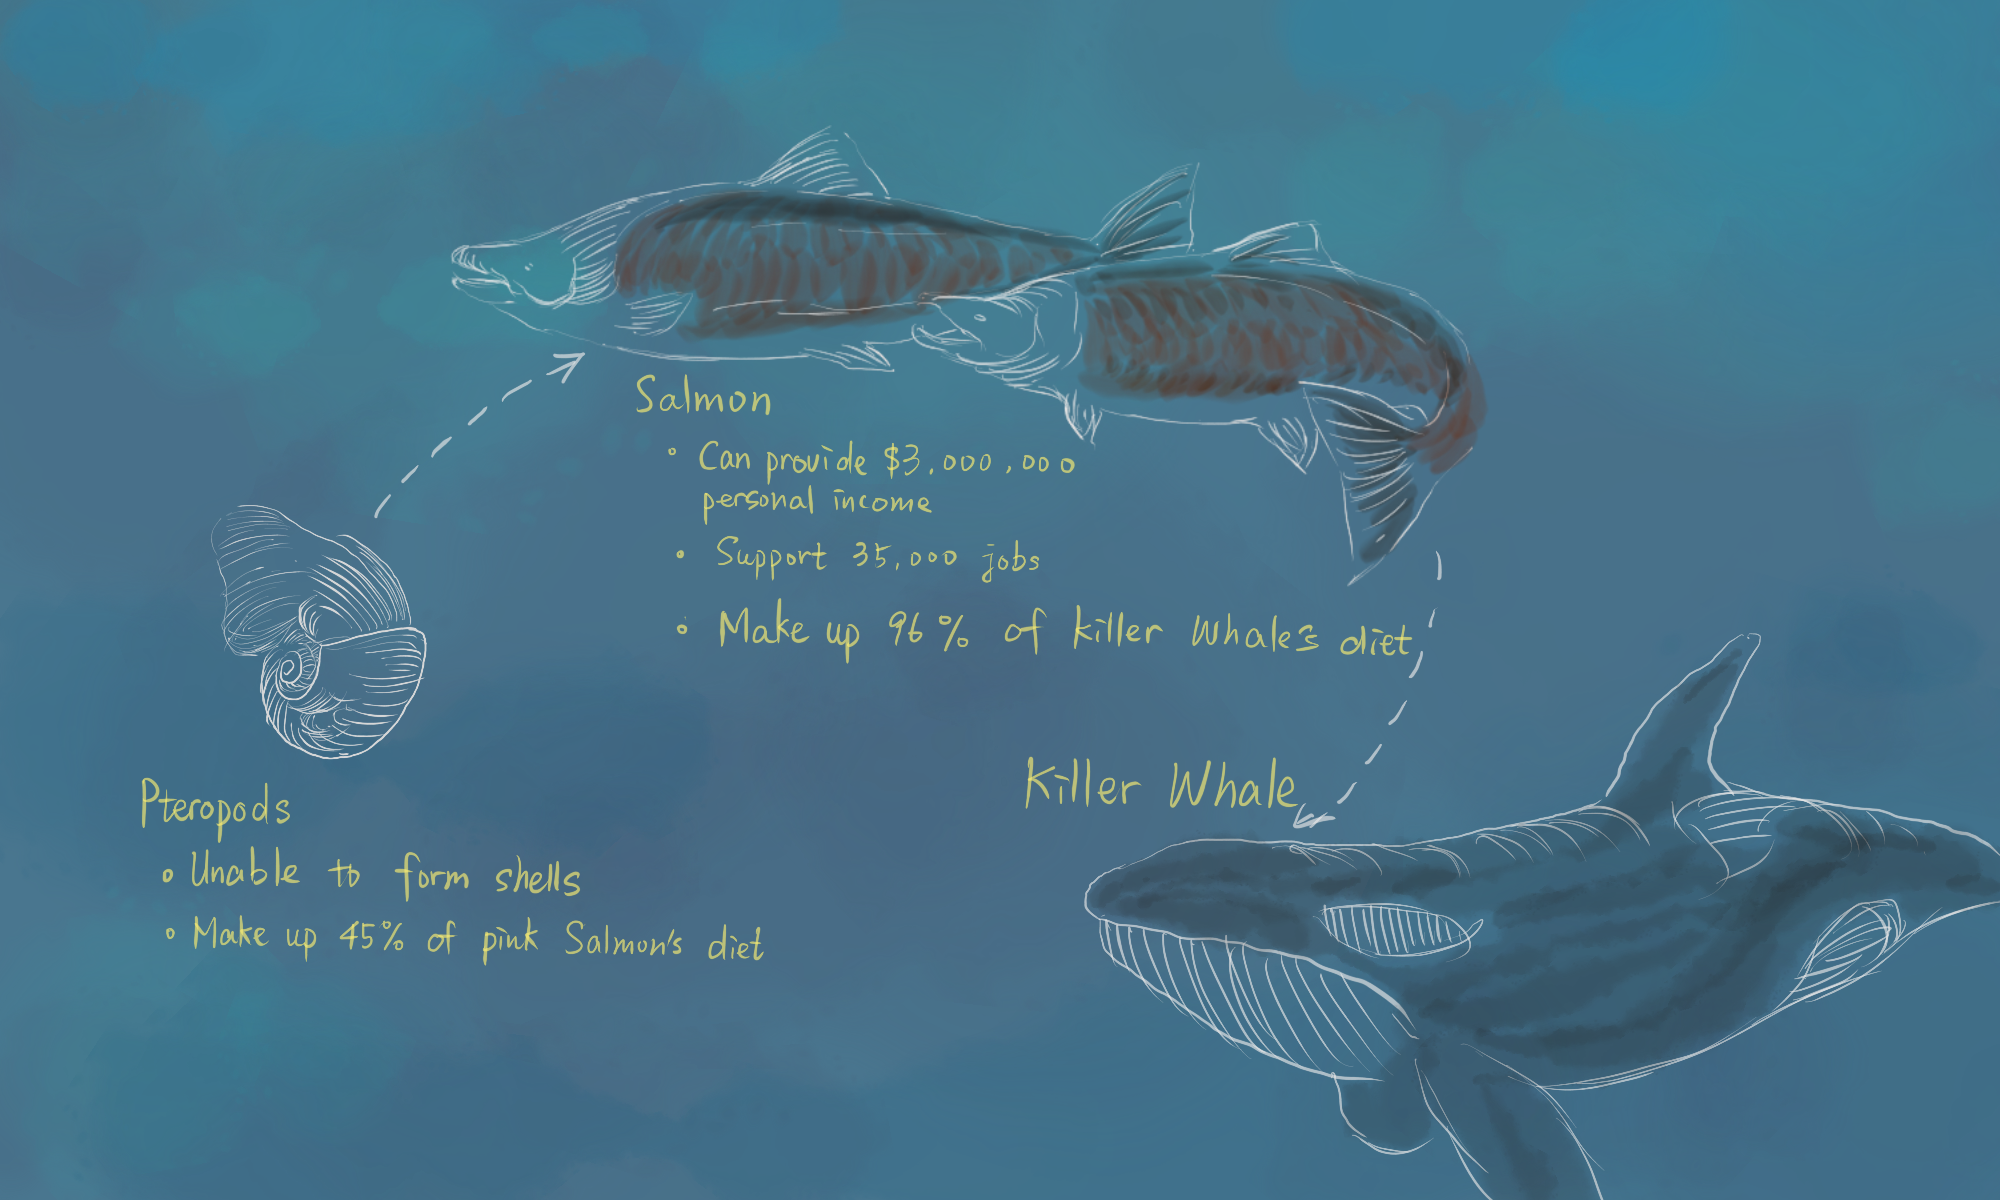 Salmon
Can provide $3,000,000
personal income
Support 35,000 jobs
Make up 96% of killer Whale's diet
Killer Whale
Pteropods
Unable to form shells
Make up 45% of pink Salmon's diet